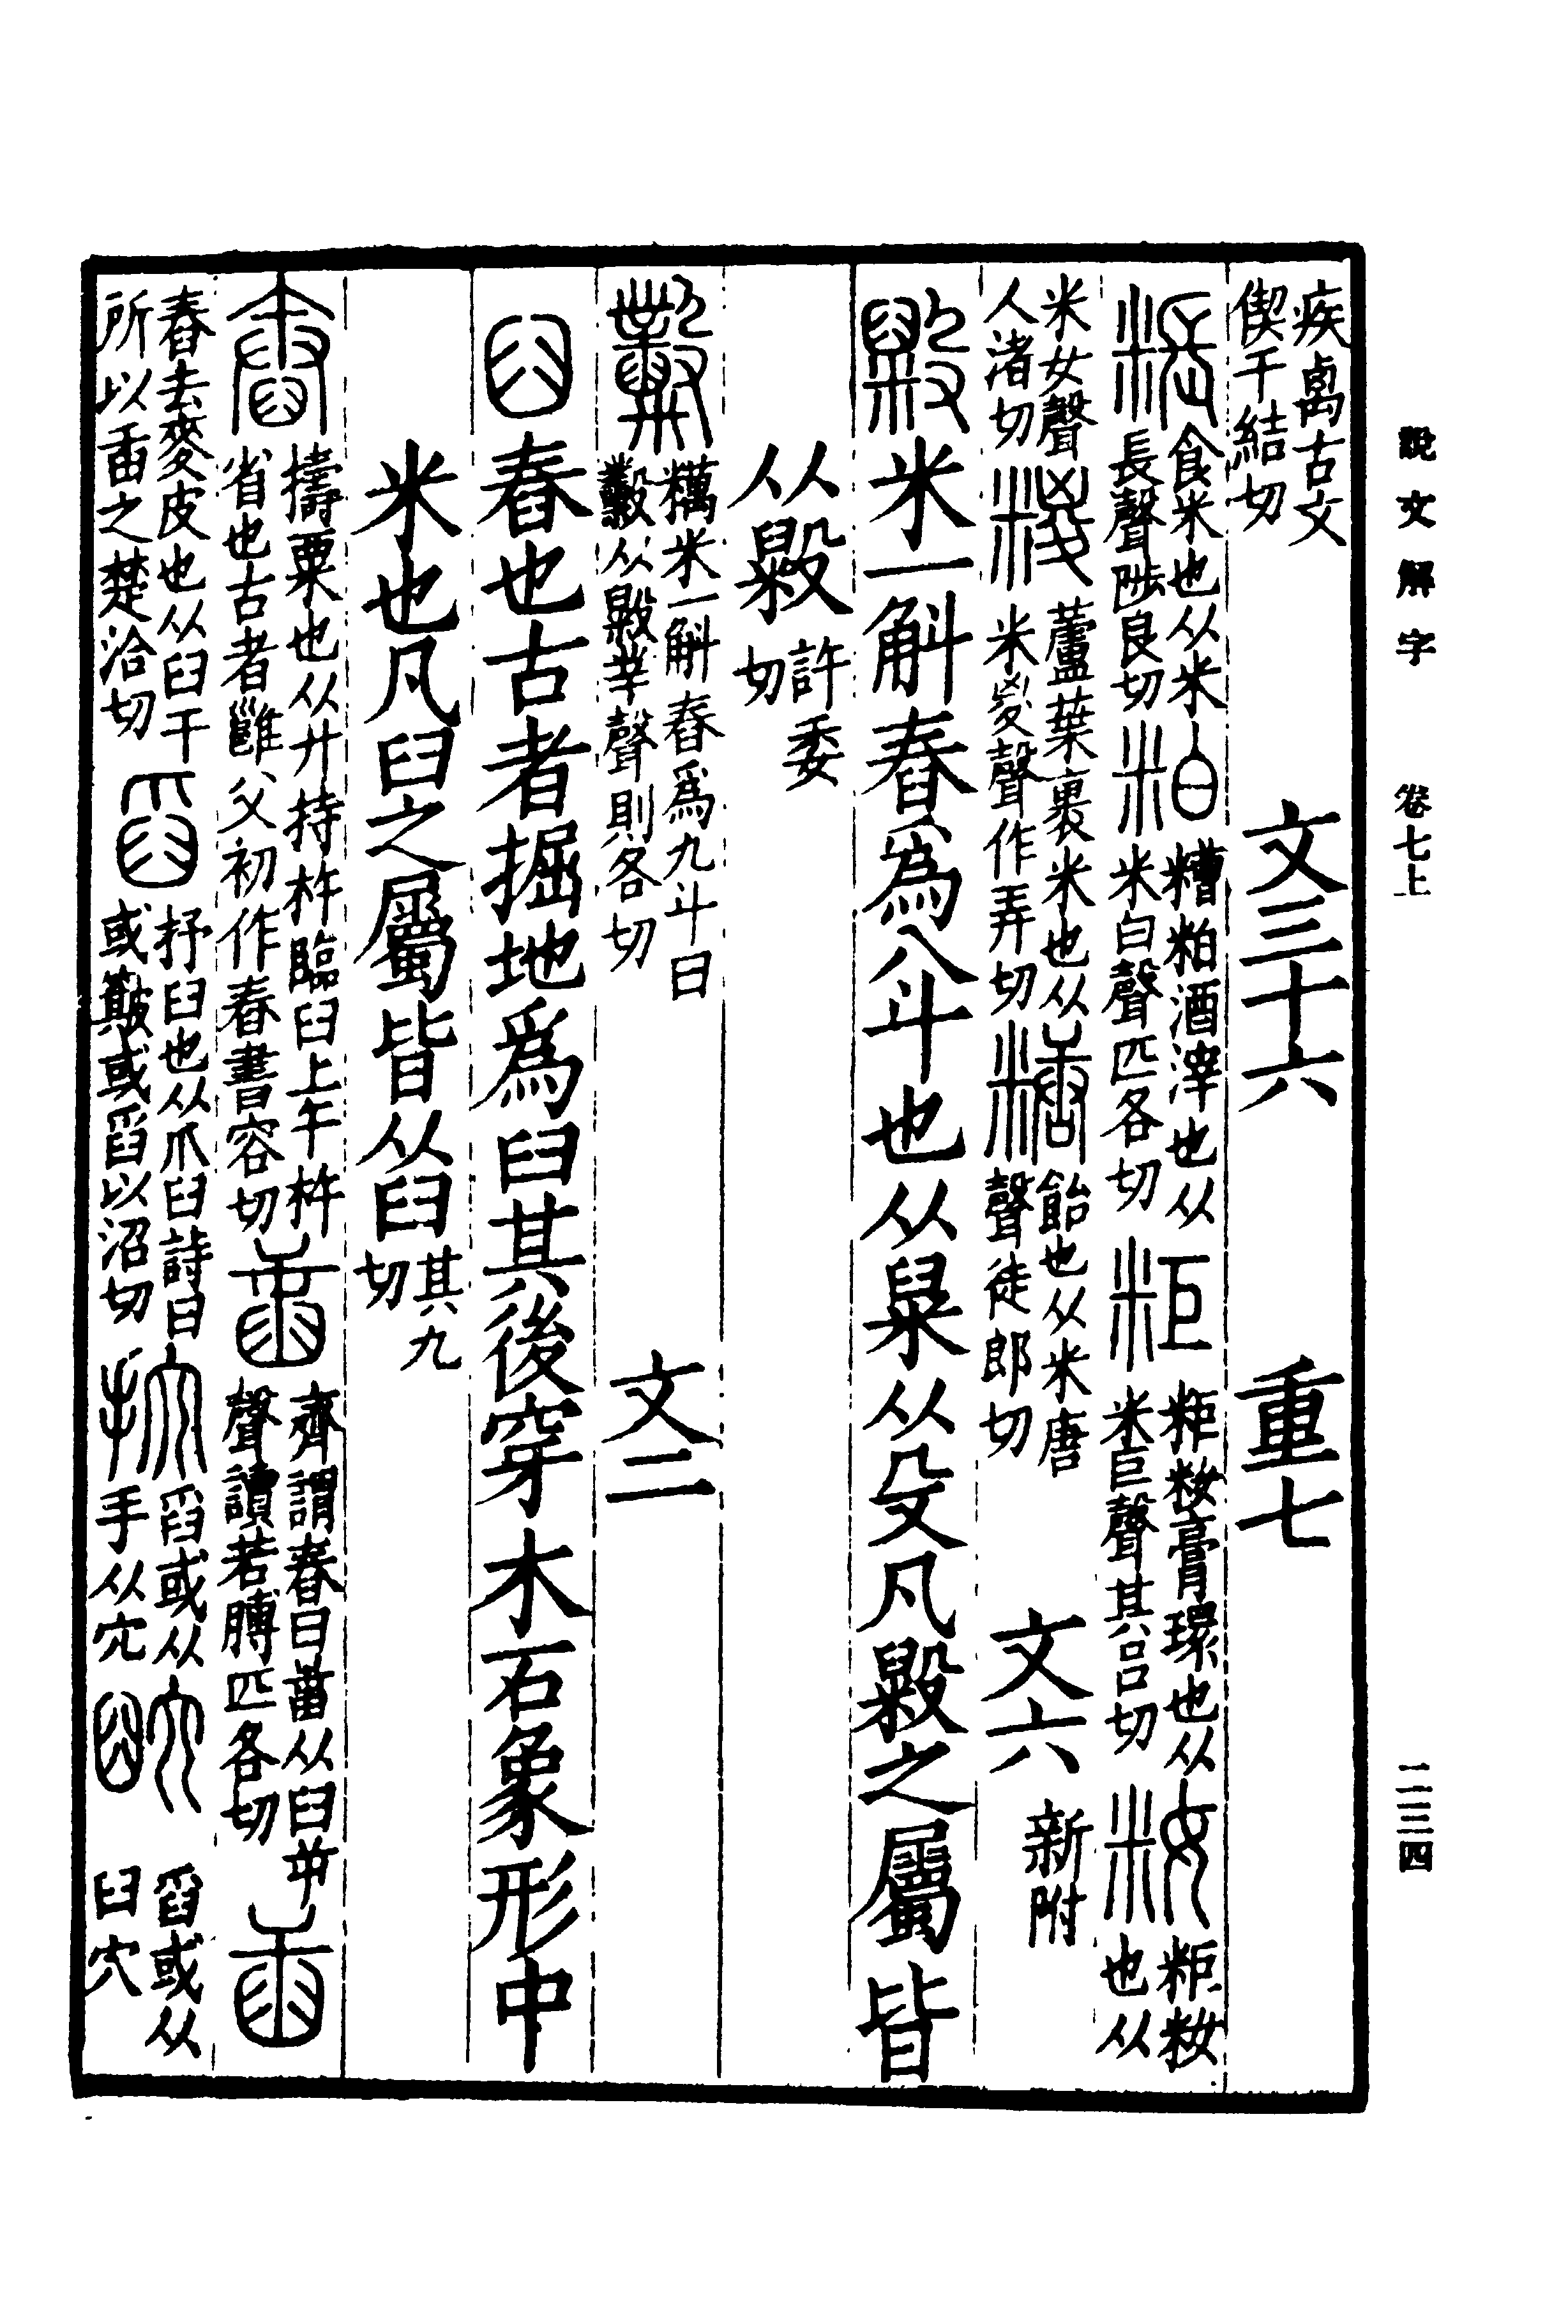 說文解字 卷七上 二三四
疾禼古文
偰千結切
文三十六 重七
粻食米也从米
長聲陟良切
粕糟粕酒滓也从
米白聲匹各切
粔粔籹膏環也从
米巨聲其呂切
籹粔籹
也从
米女聲
人渚切
糉蘆葉裹米也从
米㚇聲作弄切
糖飴也从米唐
聲徒郎切
文六 新附
毇米一斛舂爲八斗也从臼米从殳凡毇之屬皆
从毇許委
切
糳糲米一斛舂爲九斗曰
糳从毇丵聲則各切
文二
臼舂也古者掘地爲臼其後穿木石象形中
米也凡臼之屬皆从臼其九
切
舂擣粟也从廾持杵臨臼上午杵
省也古者雝父初作舂書容切
𦥛齊謂舂曰𦥛从臼屰
聲讀若膊匹各切
臿舂去麥皮也从臼干
所以臿之楚洽切
舀抒臼也从爪臼詩曰
或簸或舀以沼切
抌舀或从
手从宂
𦥽舀或从
臼宂